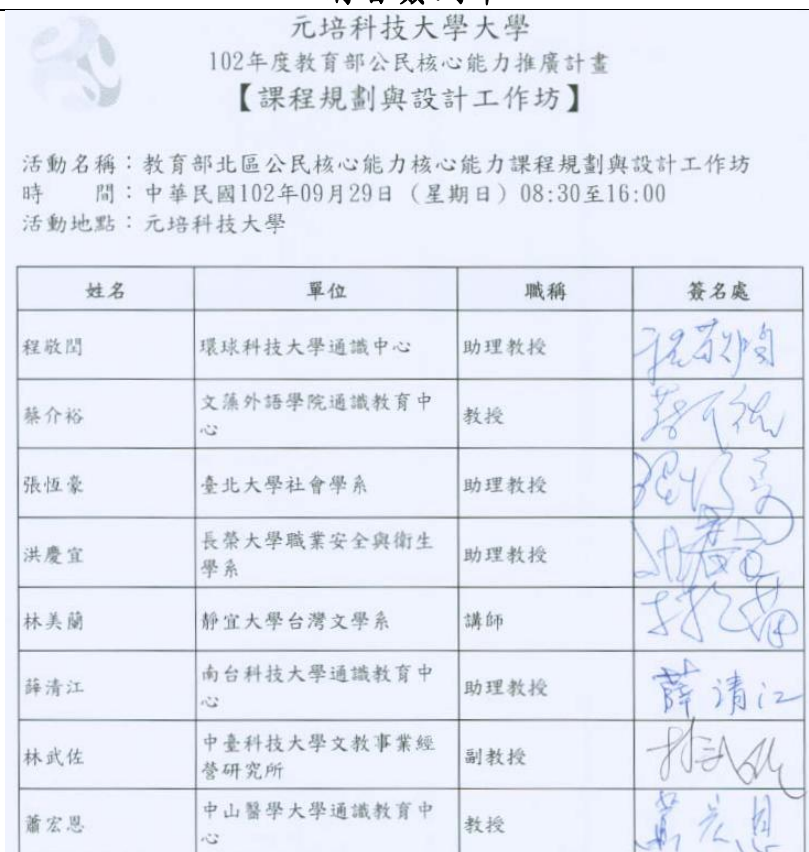 元培科技大學大學
102年度教育部公民核心能力推廣計畫
【課程規劃與設計工作坊】
活動名稱：教育部北區公民核心能力核心能力課程規劃與設計工作坊
時　　間：中華民國102年09月29日（星期日）08:30至16:00
活動地點：元培科技大學
姓名 單位 職稱 簽名處
程敬閏 環球科技大學通識中心 助理教授 程敬閏
蔡介裕 文藻外語學院通識教育中 教授 蔡介裕
心
張恆豪 臺北大學社會學系 助理教授
洪慶宜 長榮大學職業安全與衛生 助理教授
學系
林美蘭 靜宜大學台灣文學系 講師
薛清江 南台科技大學通識教育中 助理教授 薛清江
心
林武佐 中臺科技大學文教事業經 副教授
營研究所
蕭宏恩 中山醫學大學通識教育中 教授 蕭宏恩
心